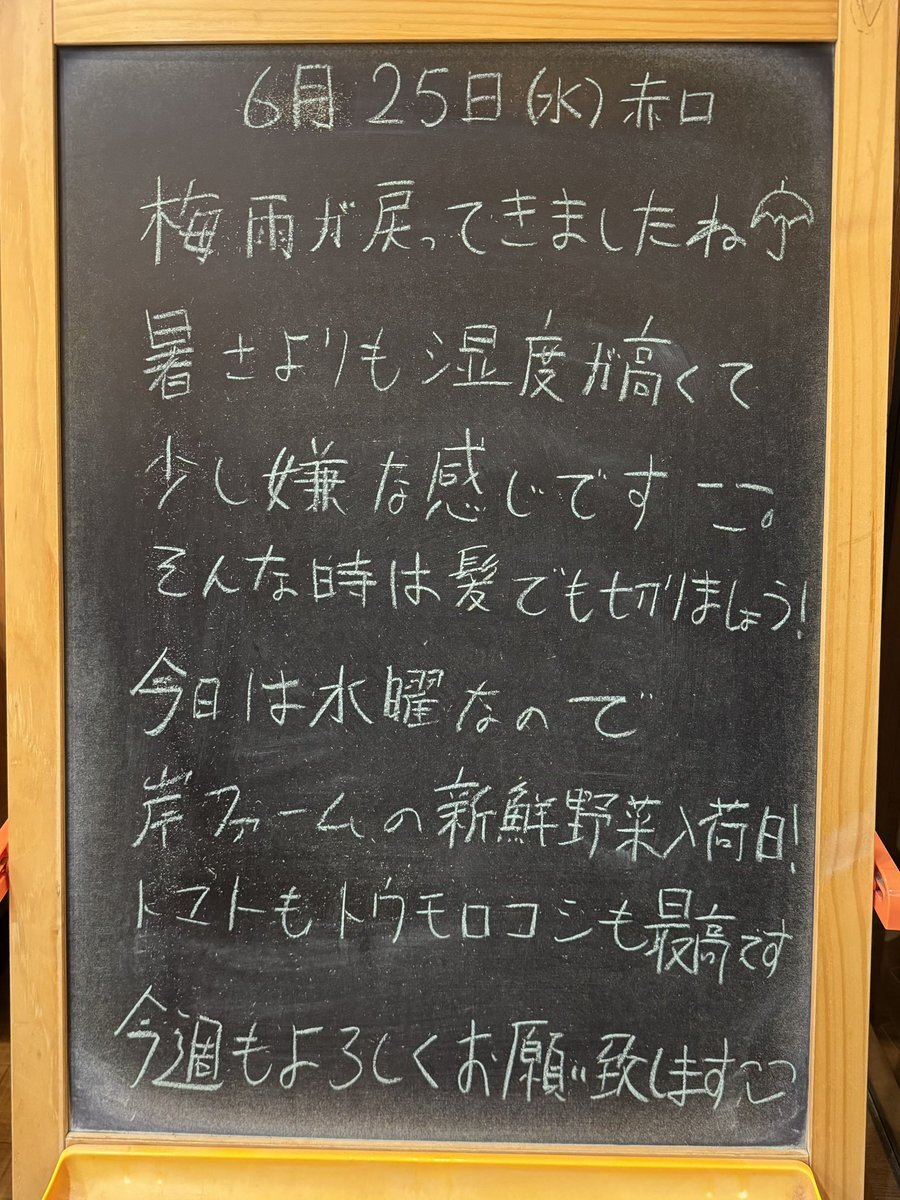 6月 25日(水) 赤口
梅雨が戻ってきましたね
暑さよりも湿度が高くて
少し嫌な感じです
そんな時は髪でも切りましょう!
今日は水曜なので
岸ファームの新鮮野菜入荷日!
トマトもトウモロコシも最高です
今週もよろしくお願い致します